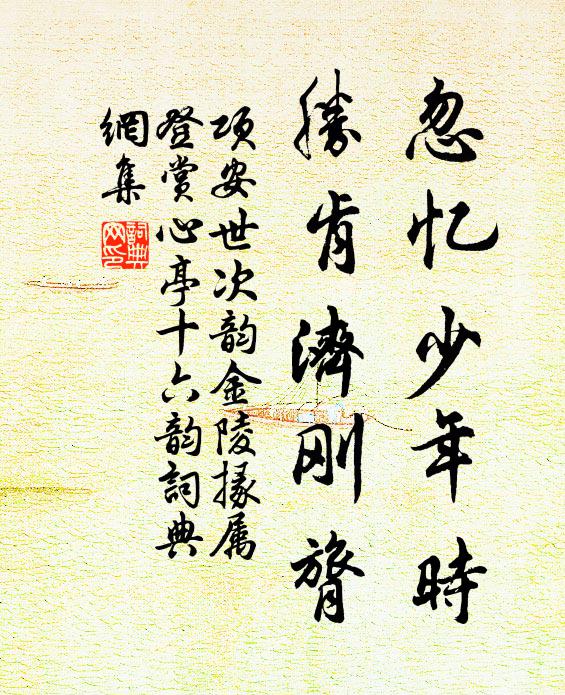 忽忆少年時
勝肯濟刚膂
项安世次韵金陵掾属
登赏心亭十六韵詞典
網集
詞典
网印